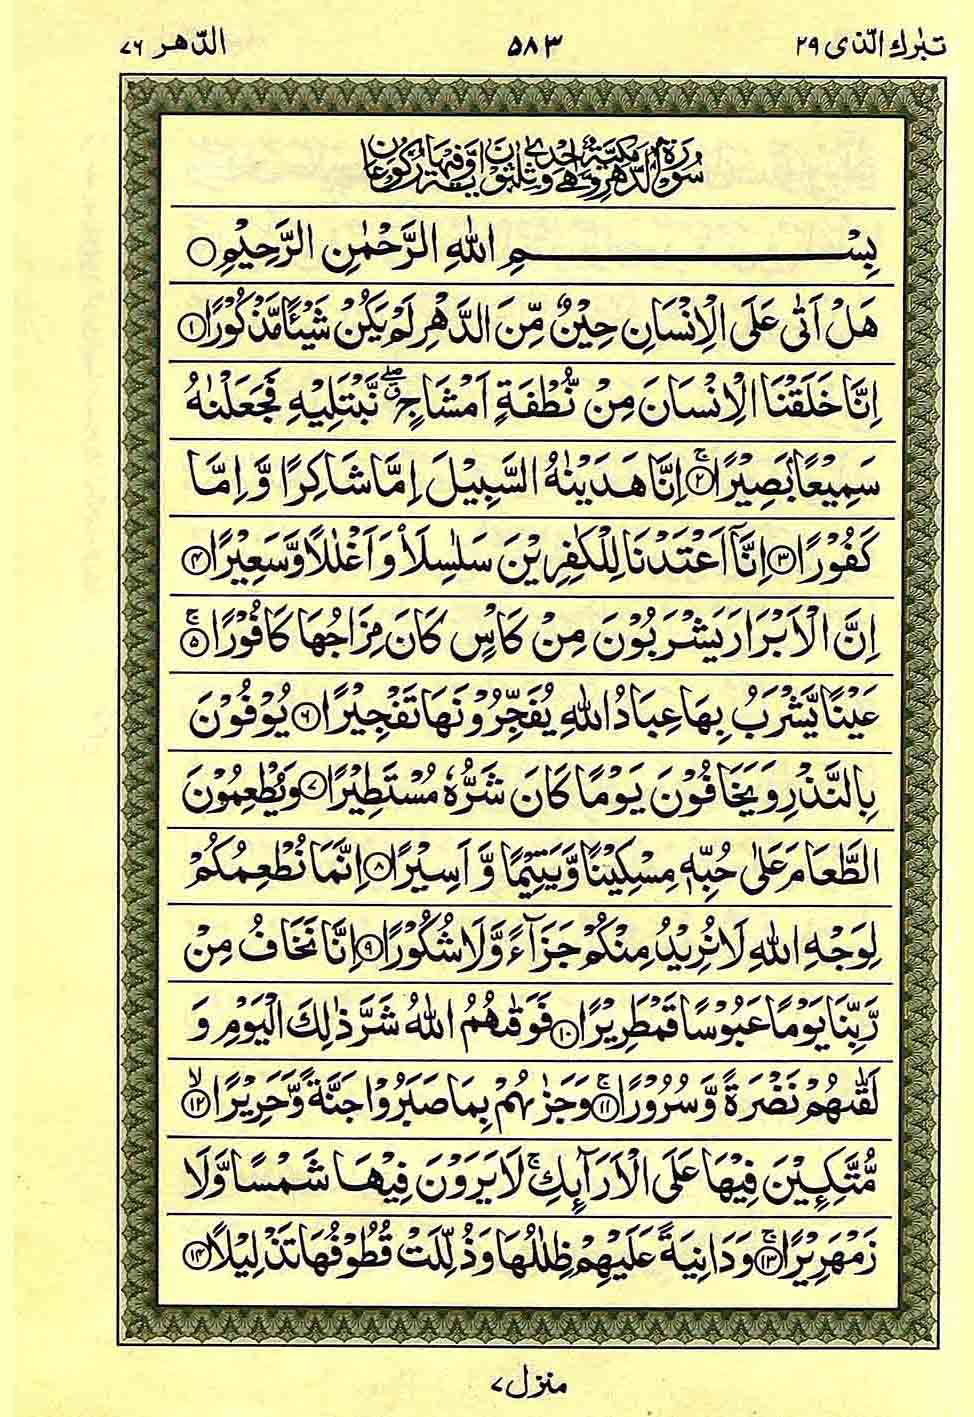 تبٰرك الّذى ٢٩
٥٨٣
الدّهر ٧٦
سُوْرَةُ الدَّهْرِ مَكِّيَّةٌ وَّهِيَ اِحْدٰى وَثَلٰثُوْنَ اٰيَةً وَّفِيْهَا رُكُوْعَانِ
بِسْمِ اللهِ الرَّحْمٰنِ الرَّحِيْمِ ○
هَلْ اَتٰى عَلَى الْاِنْسَانِ حِيْنٌ مِّنَ الدَّهْرِ لَمْ يَكُنْ شَيْـًٔا مَّذْكُوْرًا ١
اِنَّا خَلَقْنَا الْاِنْسَانَ مِنْ نُّطْفَةٍ اَمْشَاجٍ ۖق نَّبْتَلِيْهِ فَجَعَلْنٰهُ
سَمِيْعًۢا بَصِيْرًا ۚ ٢ اِنَّا هَدَيْنٰهُ السَّبِيْلَ اِمَّا شَاكِرًا وَّ اِمَّا
كَفُوْرًا ٣ اِنَّاۤ اَعْتَدْنَا لِلْكٰفِرِيْنَ سَلٰسِلَا۠ وَاَغْلٰلًا وَّسَعِيْرًا ٤
اِنَّ الْاَبْرَارَ يَشْرَبُوْنَ مِنْ كَاْسٍ كَانَ مِزَاجُهَا كَافُوْرًا ۚ ٥
عَيْنًا يَّشْرَبُ بِهَا عِبَادُ اللهِ يُفَجِّرُوْنَهَا تَفْجِيْرًا ٦ يُوْفُوْنَ
بِالنَّذْرِ وَيَخَافُوْنَ يَوْمًا كَانَ شَرُّهٗ مُسْتَطِيْرًا ٧ وَيُطْعِمُوْنَ
الطَّعَامَ عَلٰى حُبِّهٖ مِسْكِيْنًا وَّيَتِيْمًا وَّ اَسِيْرًا ٨ اِنَّمَا نُطْعِمُكُمْ
لِوَجْهِ اللهِ لَا نُرِيْدُ مِنْكُمْ جَزَآءً وَّلَا شُكُوْرًا ٩ اِنَّا نَخَافُ مِنْ
رَّبِّنَا يَوْمًا عَبُوْسًا قَمْطَرِيْرًا ١٠ فَوَقٰىهُمُ اللهُ شَرَّ ذٰلِكَ الْيَوْمِ وَ
لَقّٰىهُمْ نَضْرَةً وَّسُرُوْرًا ۚ ١١ وَجَزٰىهُمْ بِمَا صَبَرُوْا جَنَّةً وَّحَرِيْرًا ۙ ١٢
مُّتَّكِـِٕيْنَ فِيْهَا عَلَى الْاَرَآئِكِ ۚ لَا يَرَوْنَ فِيْهَا شَمْسًا وَّلَا
زَمْهَرِيْرًا ۚ ١٣ وَدَانِيَةً عَلَيْهِمْ ظِلٰلُهَا وَذُلِّلَتْ قُطُوْفُهَا تَذْلِيْلًا ١٤
منزل ٧